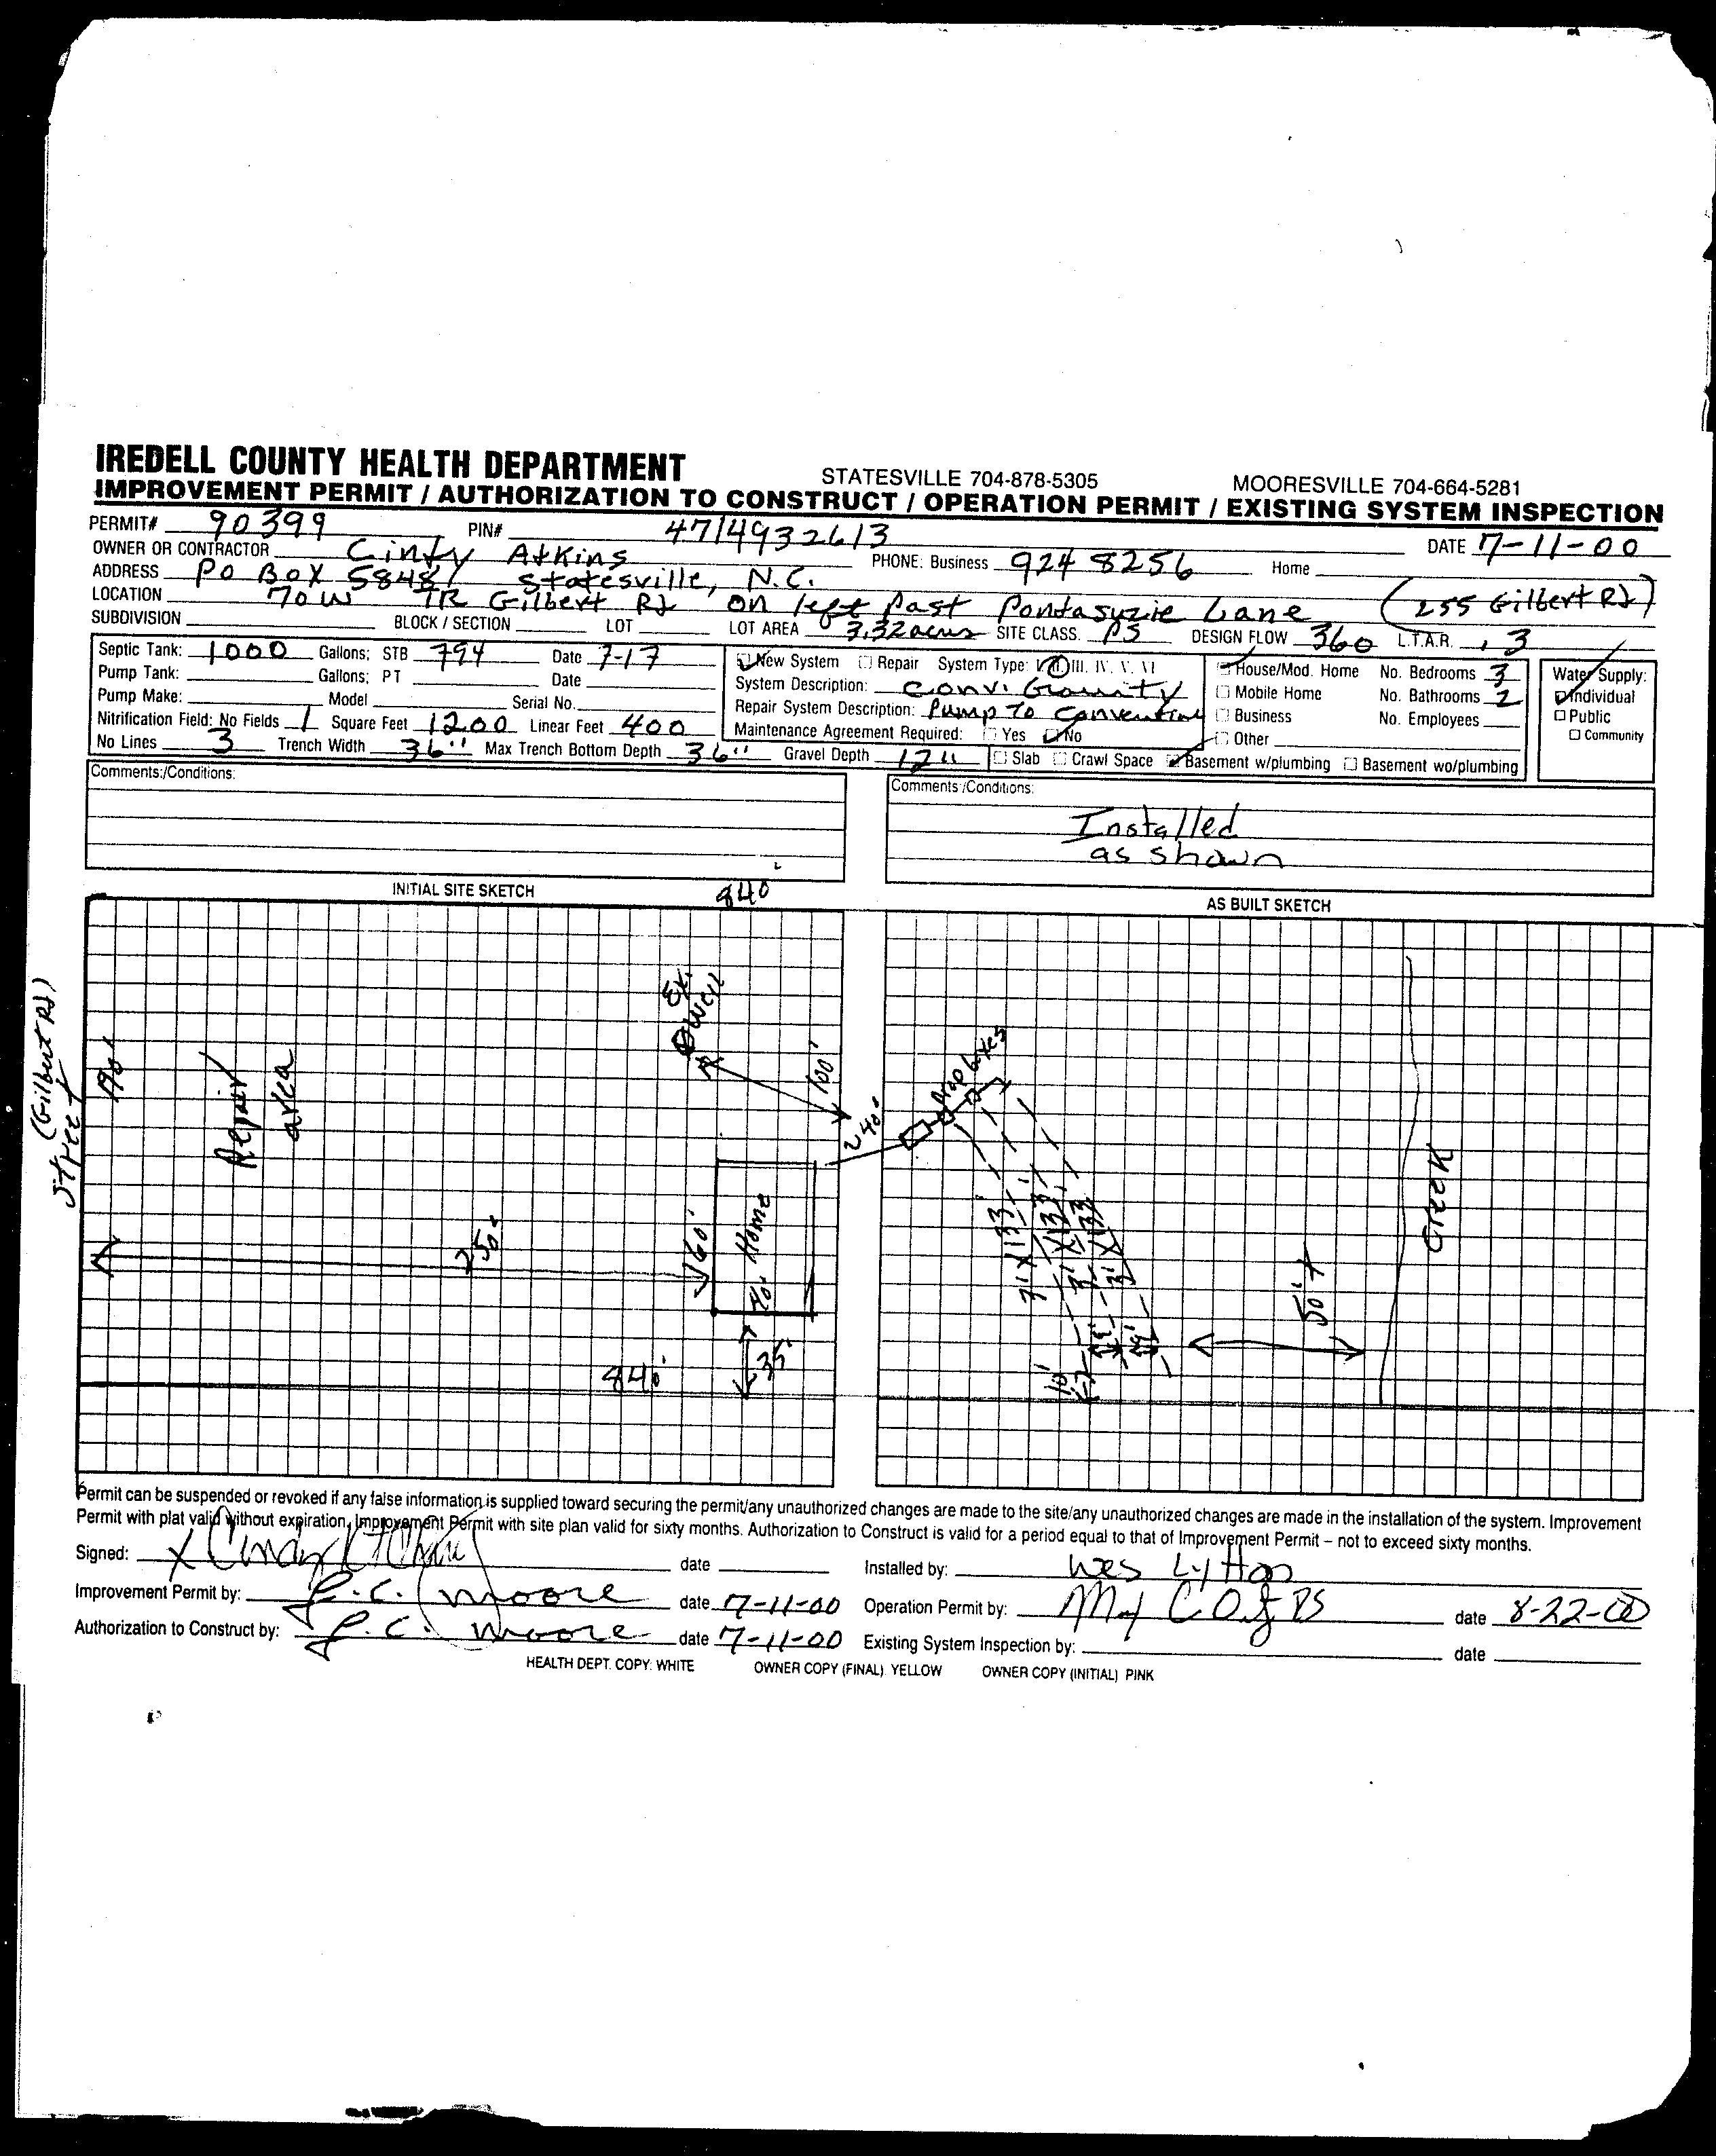 IREDELL COUNTY HEALTH DEPARTMENT STATESVILLE 704-878-5305 MOORESVILLE 704-664-5281
IMPROVEMENT PERMIT / AUTHORIZATION TO CONSTRUCT / OPERATION PERMIT / EXISTING SYSTEM INSPECTION
PERMIT# 90399 PIN# 4714932613 DATE 7-11-00
OWNER OR CONTRACTOR Cindy Atkins PHONE: Business 924 8256 Home
ADDRESS PO Box 5848 Statesville, N.C.
LOCATION 70W TR Gilbert Rd on left past Lane (255 Gilbert Rd)
SUBDIVISION BLOCK / SECTION LOT LOT AREA 3.32 acres SITE CLASS. PS DESIGN FLOW 360 L.T.A.R. .3
Septic Tank: 1000 Gallons; STB 794 Date 7-17
Pump Tank: Gallons; PT Date
Pump Make: Model Serial No.
Nitrification Field: No Fields 1 Square Feet 1200 Linear Feet 400
No Lines 3 Trench Width 36" Max Trench Bottom Depth 36" Gravel Depth 12"
New System Repair System Type: I II III. IV. V. VI
System Description: Conv. Gravity
Repair System Description: Pump to Conventional
Maintenance Agreement Required: Yes No
House/Mod. Home No. Bedrooms 3
Mobile Home No. Bathrooms 2
Business No. Employees
Other
Slab Crawl Space Basement w/plumbing Basement wo/plumbing
Water Supply:
Individual
Public
Community
Comments:/Conditions:
Comments:/Conditions:
Installed
as shown
INITIAL SITE SKETCH 840'
AS BUILT SKETCH
Street (Gilbert Rd)
190'
Repair area
Ex. Well
100'
240'
Drop boxes
250'
60'
Home
35'
840'
3'X133'
3'X133'
3'X133'
10'
9'
9'
50'+
Creek
Permit can be suspended or revoked if any false information is supplied toward securing the permit/any unauthorized changes are made to the site/any unauthorized changes are made in the installation of the system. Improvement
Permit with plat valid without expiration, Improvement Permit with site plan valid for sixty months. Authorization to Construct is valid for a period equal to that of Improvement Permit – not to exceed sixty months.
Signed: X Cindy Atkins date Installed by: Wes Lytton
Improvement Permit by: J.C. Moore date 7-11-00 Operation Permit by: date 8-22-00
Authorization to Construct by: J.C. Moore date 7-11-00 Existing System Inspection by: date
HEALTH DEPT. COPY: WHITE OWNER COPY (FINAL) YELLOW OWNER COPY (INITIAL) PINK